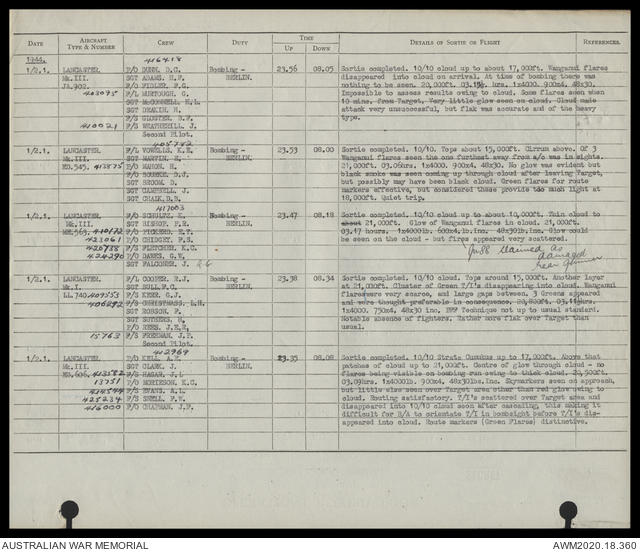 DATE AIRCRAFT TYPE & NUMBER CREW DUTY TIME UP DOWN DETAILS OF SORTIE OR FLIGHT REFERENCES.
1944.
416418
1/2.1. LANCASTER P/O DUNN, D.C. Bombing- 23.56 08.05 Sortie completed. 10/10 cloud up to about 17,000ft. Wanganui flares
Mk.III. SGT ADAMS, H.F. BERLIN. disappeared into cloud on arrival. At time of bombing there was
JA.902. P/O FIDLER, F.G. nothing to be seen. 20,000ft. hrs. 1x4000. 900x4. 48x30.
F/L MURTOUGH, G. Impossible to assess results owing to cloud. Some flares seen when
SGT McCONNELL, H.L. 10 mins. from Target. Very little glow seen on cloud. Cloud made
SGT DEAKIN, H. attack very unsuccessful, but flak was accurate and of the heavy
F/S GLOSTER, B.F. type.
410021 F/S WEATHERILL, J.
Second Pilot.
405742
1/2.1. LANCASTER F/L VOWELS, R.E. Bombing- 23.53 08.00 Sortie completed. 10/10. Tops about 15,000ft. Cirrus above. Of 3
Mk.III. SGT MARTIN, E. BERLIN. Wanganui flares seen the one furthest away from a/c was in sights.
ND.545. 413875 F/O MAHON, H. 21,000ft. 03.06hrs. 1x4000. 900x4. 48x30. No glow was evident but
F/O BOURKE, D.J. black smoke was seen coming up through cloud after leaving Target,
SGT BROOM, D. but possibly may have been black cloud. Green flares for route
SGT CAMPBELL, J. markers effective, but considered these provide too much light at
SGT CHALK, D.B. 18,000ft. Quiet trip.
417003
1/2.1. LANCASTER F/O SCHULTZ, K. Bombing- 23.47 08.18 Sortie completed. 10/10 cloud up to about 10,000ft. Thin cloud to
Mk.III. SGT BISHOP, F.R. BERLIN. about 21,000ft. Glow of Wanganui flares in cloud. 21,000ft.
ME.563. F/O PICKERD, E.T. 03.17 hours. 1x4000lb. 600x4.lb.Inc. 48x30lb.Inc. Glow could
423061 F/O CHIDGEY, P.S. be seen on the cloud - but fires appeared very scattered.
420738 F/S FLETCHER, K.C. Ju.88 claimed as
424290 F/O DAWES, G.W. damaged
SGT FALCONER, J. R G near
1/2.1. LANCASTER F/L COOPER, R.J. Bombing- 23.38 08.34 Sortie completed. 10/10 cloud. Tops around 15,000ft. Another layer
Mk.I. SGT BULL, F.C. BERLIN. at 21,000ft. Cluster of Green T/I's disappearing into cloud. Wanganui
LL.740 409553 F/S KERR, G.J. flares were very scarce, and large gaps between. 3 Greens appeared
406692 F/S CHRISTMASS, L.H. and were thought preferable in consequence. 20,800ft. 03.11½hrs.
SGT ROBSON, P. 1x4000. 750x4. 48x30 inc. PFF Technique not up to usual standard.
SGT SUTHERS, H. Notable absence of fighters. Rather more flak over Target than
F/O REES, J.E.R. usual.
15763 F/S FREEMAN, J.P.
Second Pilot.
412969
1/2.1. LANCASTER F/O KELL, A.E. Bombing - 23.35 08.08 Sortie completed. 10/10 Strato Cumulus up to 17,000ft. Above that
Mk.III. SGT CLARK, J. BERLIN. patches of cloud up to 21,000ft. Centre of glow through cloud - no
ND.606. 413582 F/S HAGAN, J.L flares being visible on bombing run owing to thick cloud. 20,500ft.
13751 F/O MORIESON, K.G. 03.09hrs. 1x4000lb. 900x4. 48x30lbs.Inc. Skymarkers seen on approach,
414544 F/S EVANS, A.L. but little else seen over Target area other than red glow owing to
425234 F/S SWELL, F.W. cloud. Routing satisfactory. T/I's scattered over Target area and
416000 F/O CHAPMAN, J.F. disappeared into 10/10 cloud soon after cascading, this making it
difficult for B/A to orientate T/I in bombsight before T/I's dis-
appeared into cloud. Route markers (Green Flares) distinctive.
AUSTRALIAN WAR MEMORIAL AWM2020.18.360